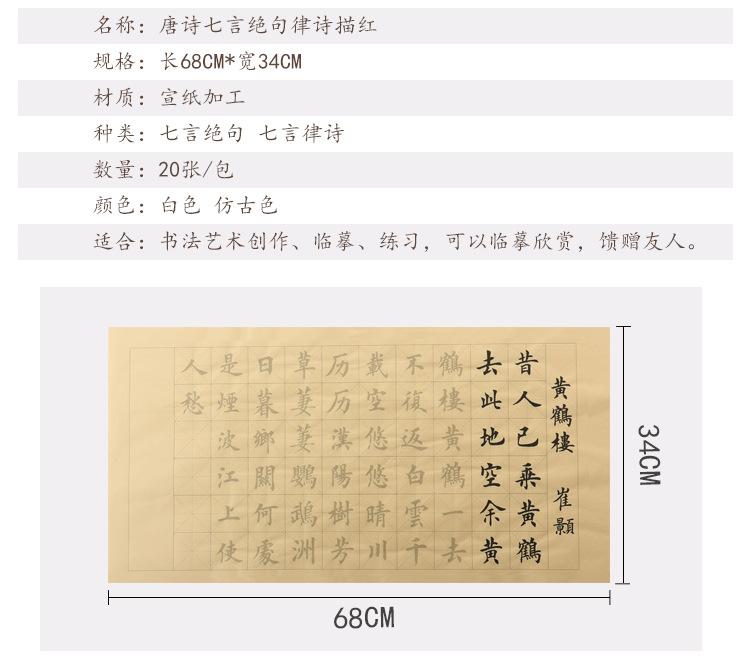 名称：唐诗七言绝句律诗描红
规格：长68CM*宽34CM
材质：宣纸加工
种类：七言绝句 七言律诗
数量：20张/包
颜色：白色 仿古色
适合：书法艺术创作、临摹、练习，可以临摹欣赏，馈赠友人。
黄鶴樓 崔顥
昔人已乗黄鶴
去此地空余黄
鶴樓黄鶴一去
不復返白雲千
載空悠悠晴川
历历漢陽樹芳
草萋萋鸚鵡洲
日暮鄉關何處
是煙波江上使
人愁
34CM
68CM